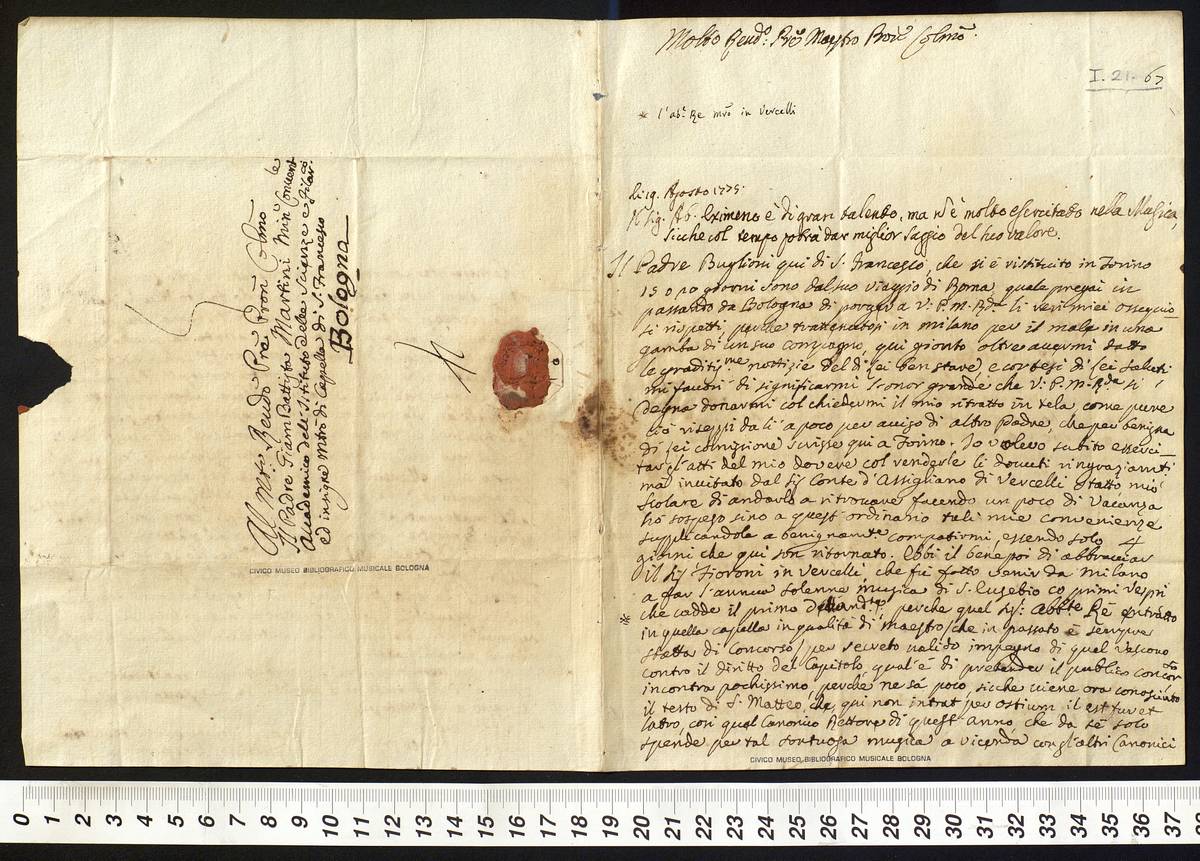 Al Mto: Rendo Pre Pron Colmo
Il Padre Giam Battista Martini Min Convent le
Accademico dell'Istituto delle Scienze e Filar:co
ed insigne Mtro di Capella di S. Francesco
Bologna
CIVICO MUSEO BIBLIOGRAFICO MUSICALE BOLOGNA
Molto Rendo: Pre Maestro Prone Colmo.
I. 21. 67
* l'ab: Re mro in Vercelli
li 19. Agosto 1775.
Il Sig. Ab. Eximeno è di gran talento, ma n'è molto esercitado nella Musica,
sicche col tempo potrà dar miglior saggio del suo valore.
Il Padre Buglioni qui di S. Francesco, che si è ristituito in Torino
15 o 20 giorni sono dal suo viaggio di Roma, quale pregai in
passando da Bologna di portar a V. P. M. Rda li veri miei ossequio
si rispetti, perche trattenutosi in milano per il male in una
gamba di un suo compagno, qui gionto oltre avermi datto
le graditisme notizie del di Lei ben stare, e cortesi di Lei saluti
mi favorì di significarmi l'onor grande che V. P. M. Rda si
degna donarmi col chiedermi il mio ritratto in tela, come pure
ciò risepi da lì a poco per aviso di altro Padre, che per benigna
di Lei comissione scrisse qui a Torino. Io volevo subito eserci_
tar gl'atti del mio dovere col renderle li dovuti ringraziamti
ma invitato dal Sig Conte d'Assigliano di Vercelli stato mio
scolare di andarlo a ritrovare facendo un poco di Vacanza
hò sospeso sino a quest'ordinario tali mie convenienze
supplicandola a benignamte compatirmi, essendo solo 4
giorni che qui son ritornato. Ebbi il bene poi di abbracciar
il Sig Fioroni in Vercelli, che fù fatto venir da Milano
a far l'annua solenne musica di S. Eusebio co primi Vespri
che cadde il primo perche quel Sig: Abbte Rè entratto
* in quella capella in qualità di maestro (che in passato è sempre
statta di concorso) per secreto valido impegno di qual Vescovo
contro il diritto del Capitolo, qual'è di pretender il publico concor
so
incontra pochissimo, perchè ne sà poco, sicche viene ora conosciuto
il testo di S. Matteo, che qui non intrat per ostium ille est fur et
latro, così qual Canonico Rettore di quest'anno, che da sè solo
spende per tal sontuosa musica a vicenda con gl'altri Canonici
CIVICO MUSEO BIBLIOGRAFICO MUSICALE BOLOGNA
0 1 2 3 4 5 6 7 8 9 10 11 12 13 14 15 16 17 18 19 20 21 22 23 24 25 26 27 28 29 30 31 32 33 34 35 36 37 38